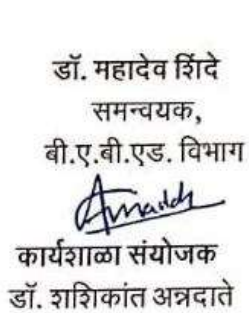 डॉ. महादेव शिंदे
समन्वयक,
बी.ए.बी.एड. विभाग
कार्यशाळा संयोजक
डॉ. शशिकांत अन्नदाते